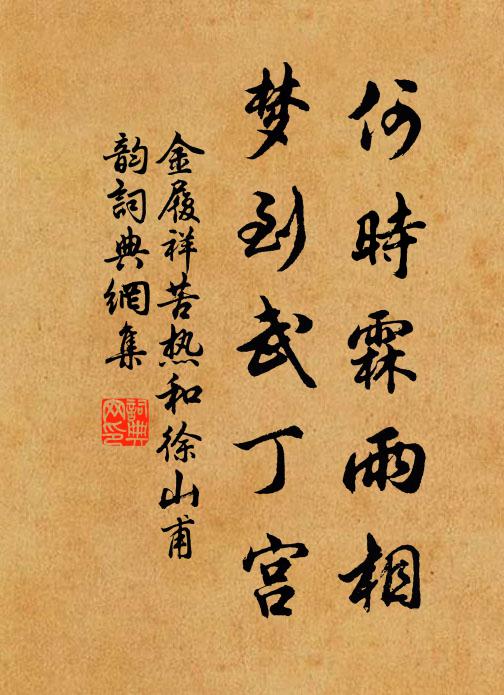 何時霖雨相
梦到武丁宫
金履祥苦热和徐山甫
韵詞典網集
詞典網印